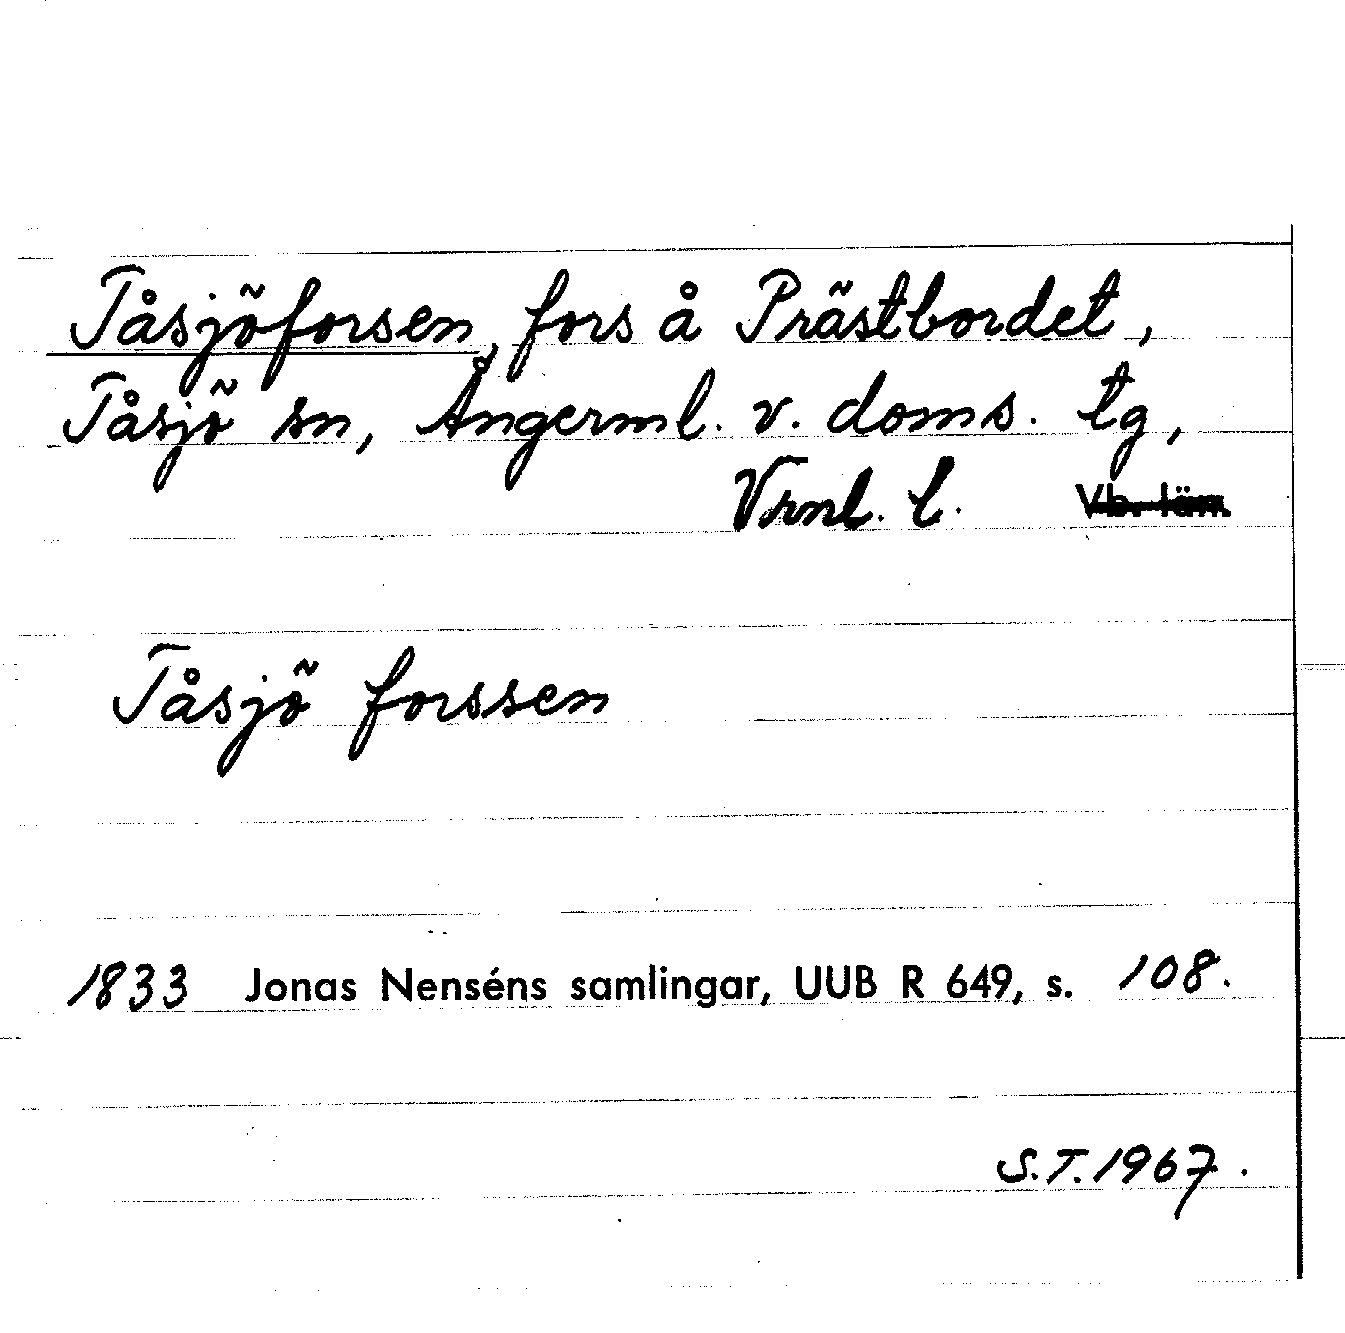 Tåsjöforsen, fors å Prästbordet,
Tåsjö sn, Ångerml. v. doms. tg,
Vrnl. l. Vb. län
Tåsjö forssen
1833 Jonas Nenséns samlingar, UUB R 649, s. 108.
S.T. 1967.